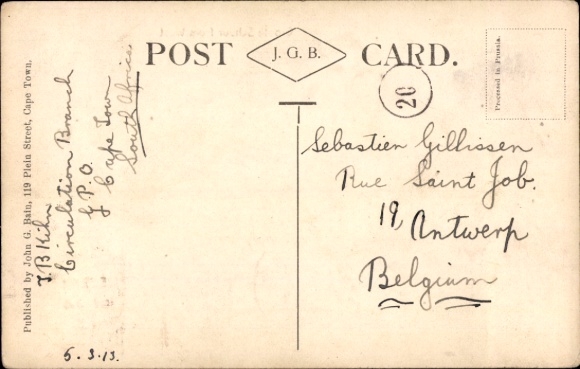 POST J. G. B. CARD.
Processed in Prussia.
20
Published by John G. Bain, 119 Plein Street, Cape Town.
J. B Kihn
Circulation Branch
G P. O.
Cape Town
South Africa
5. 3. 13.
Sebastien Gillissen
Rue Saint Job.
19, Antwerp
Belgium